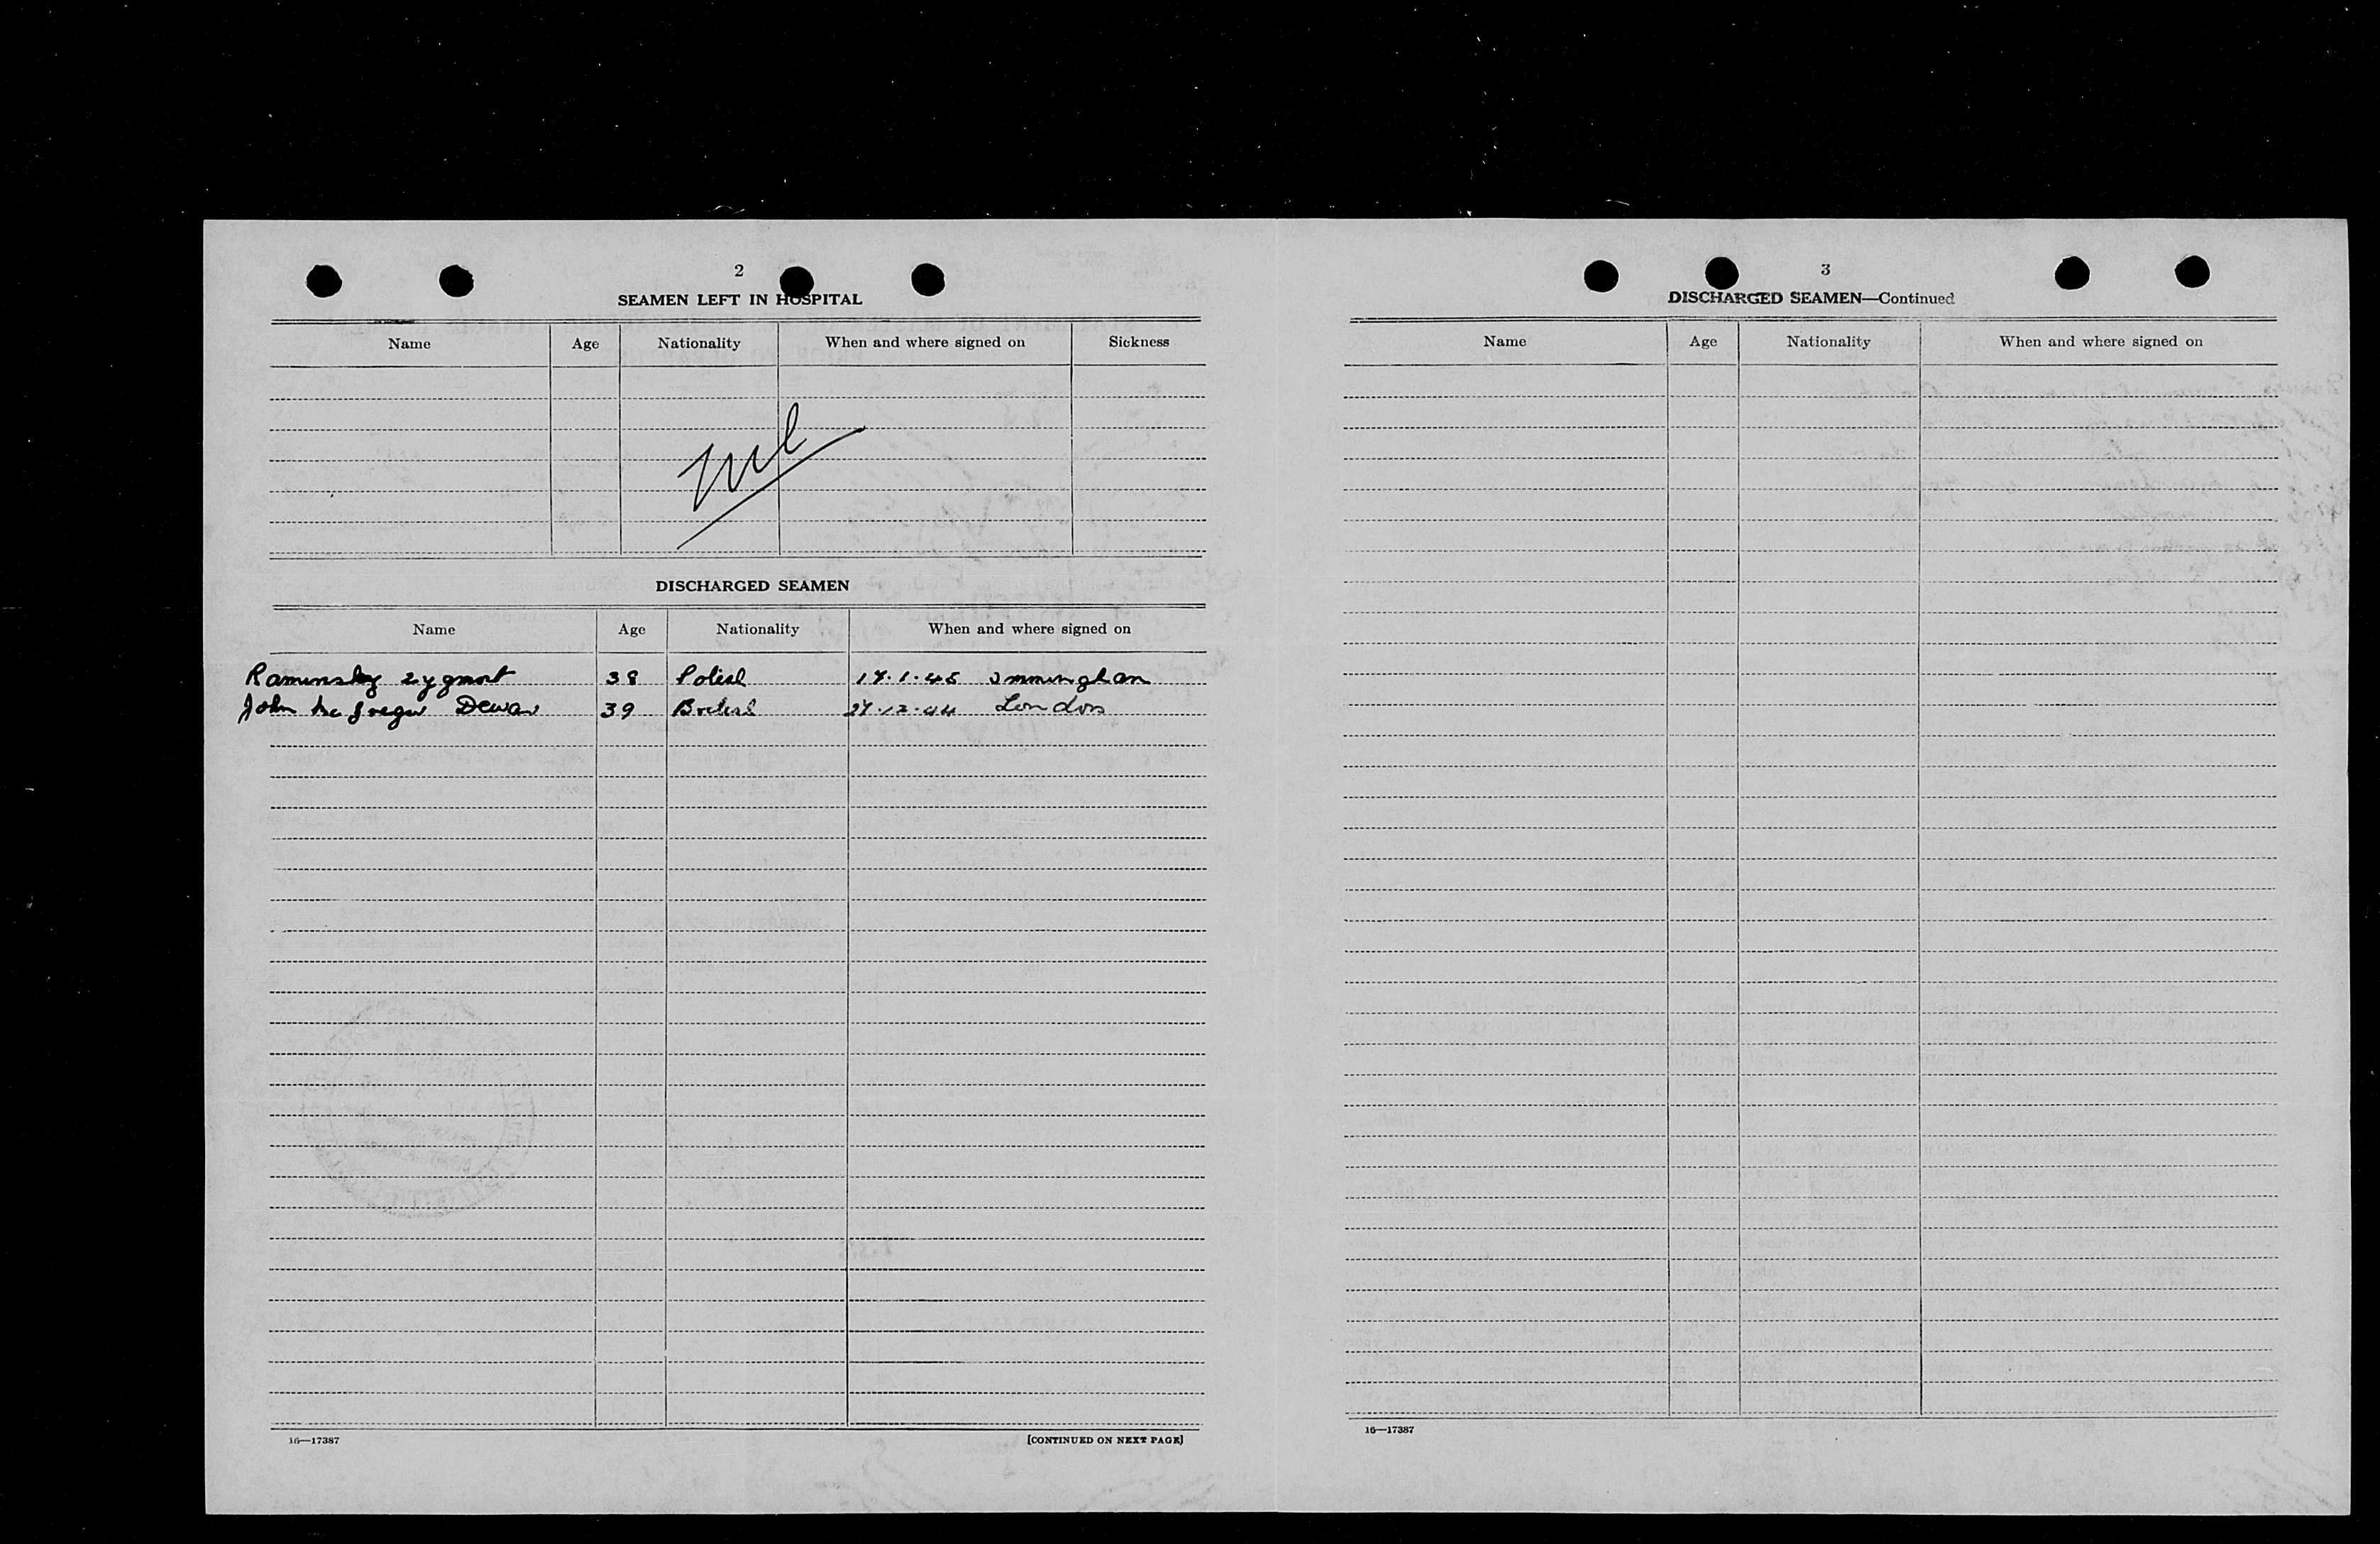 2
SEAMEN LEFT IN HOSPITAL
Name Age Nationality When and where signed on Sickness
Nil
DISCHARGED SEAMEN
Name Age Nationality When and where signed on
Raminsky Zygmont 38 Polish 17.1.45 Immingham
John McGregor Dewar 39 British 27.12.44 London
16—17387
[CONTINUED ON NEXT PAGE]
3
DISCHARGED SEAMEN—Continued
Name Age Nationality When and where signed on
16—17387